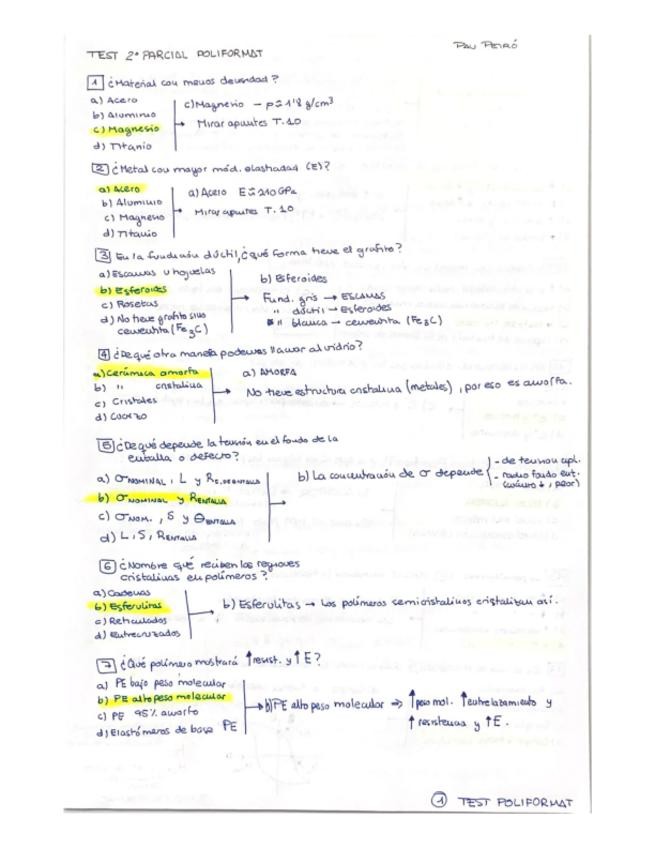 Pau Peiró
TEST 2º PARCIAL POLIFORMAT
1 ¿Material con menos densidad?
a) Acero
b) Aluminio
c) Magnesio
d) Titanio
c) Magnesio - ρ = 1'8 g/cm³
→ Mirar apuntes T.10
2 ¿Metal con mayor mód. elasticidad (E)?
a) Acero
b) Aluminio
c) Magnesio
d) Titanio
a) Acero E = 210 GPa
→ Mirar apuntes T.10
3 En la fundición dúctil, ¿qué forma tiene el grafito?
a) Escamas u hojuelas
b) Esferoides
c) Rosetas
d) No tiene grafito sino
cementita (Fe₃C)
b) Esferoides
→ Fund. gris → ESCAMAS
" dúctil → Esferoides
" blanca → cementita (Fe₃C)
4 ¿De qué otra manera podemos llamar al vidrio?
a) Cerámica amorfa
b) " cristalina
c) Cristales
d) Cuarzo
a) AMORFA
→ No tiene estructura cristalina (metales), por eso es amorfa.
5 ¿De qué depende la tensión en el fondo de la
entalla o defecto?
a) σ NOMINAL, L y R
b) σ NOMINAL y R ENTALLA
c) σ NOM., S y θ ENTALLA
d) L, S, R ENTALLA
→ b) La concentración de σ depende
- de tensión apl.
- radio fondo ent.
(cuanto ↓, peor)
6 ¿Nombre que reciben las regiones
cristalinas en polímeros?
a) Cadenas
b) Esferulitas
c) Reticulados
d) Entrecruzados
→ b) Esferulitas → Los polímeros semicristalinos cristalizan así.
7 ¿Qué polímero mostrará ↑resist. y ↑E?
a) PE bajo peso molecular
b) PE alto peso molecular
c) PE 95% amorfo
d) Elastómeros de base PE
→ b) PE alto peso molecular => ↑peso mol. ↑entrelazamiento y
↑resistencia y ↑E.
1 TEST POLIFORMAT